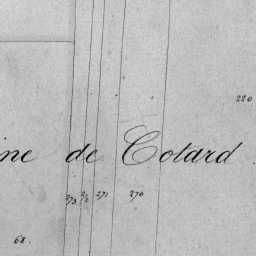 220
ine de Cotard
273 272 271 270
68.